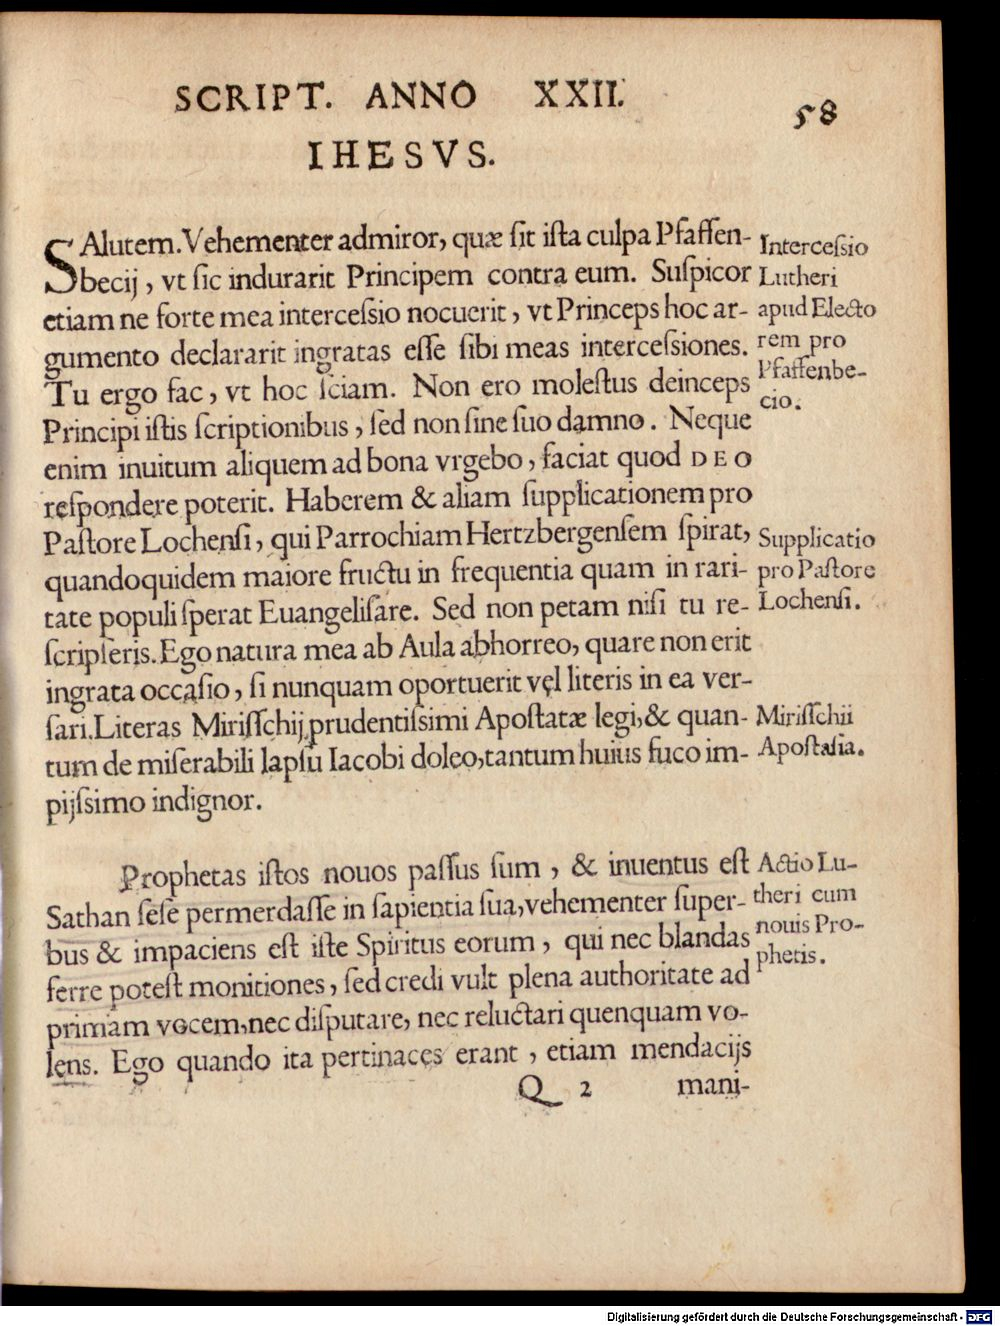 SCRIPT. ANNO XXII. 58
IHESVS.
SAlutem. Vehementer admiror, quæ ſit iſta culpa Pfaffen-
becij, vt ſic indurarit Principem contra eum. Suſpicor
etiam ne forte mea interceſsio nocuerit, vt Princeps hoc ar-
gumento declararit ingratas eſſe ſibi meas interceſsiones.
Tu ergo fac, vt hoc ſciam. Non ero moleſtus deinceps
Principi iſtis ſcriptionibus, ſed non ſine ſuo damno. Neque
enim inuitum aliquem ad bona vrgebo, faciat quod DEO
reſpondere poterit. Haberem & aliam ſupplicationem pro
Paſtore Lochenſi, qui Parrochiam Hertzbergenſem ſpirat,
quandoquidem maiore fructu in frequentia quam in rari-
tate populi ſperat Euangeliſare. Sed non petam niſi tu re-
ſcripſeris. Ego natura mea ab Aula abhorreo, quare non erit
ingrata occaſio, ſi nunquam oportuerit vel literis in ea ver-
ſari. Literas Miriſſchij prudentiſsimi Apoſtatæ legi, & quan-
tum de miſerabili lapſu Iacobi doleo, tantum huius fuco im-
pijſsimo indignor.
Interceſsio
Lutheri
apud Electo
rem pro
Pfaffenbe-
cio.
Supplicatio
pro Paſtore
Lochenſi.
Miriſſchii
Apoſtaſia.
Prophetas iſtos nouos paſſus ſum, & inuentus eſt
Sathan ſeſe permerdaſſe in ſapientia ſua, vehementer ſuper-
bus & impaciens eſt iſte Spiritus eorum, qui nec blandas
ferre poteſt monitiones, ſed credi vult plena authoritate ad
primam vocem, nec diſputare, nec reluctari quenquam vo-
lens. Ego quando ita pertinaces erant, etiam mendacijs
Actio Lu-
theri cum
nouis Pro-
phetis.
Q 2 mani-
Digitalisierung gefördert durch die Deutsche Forschungsgemeinschaft - DFG